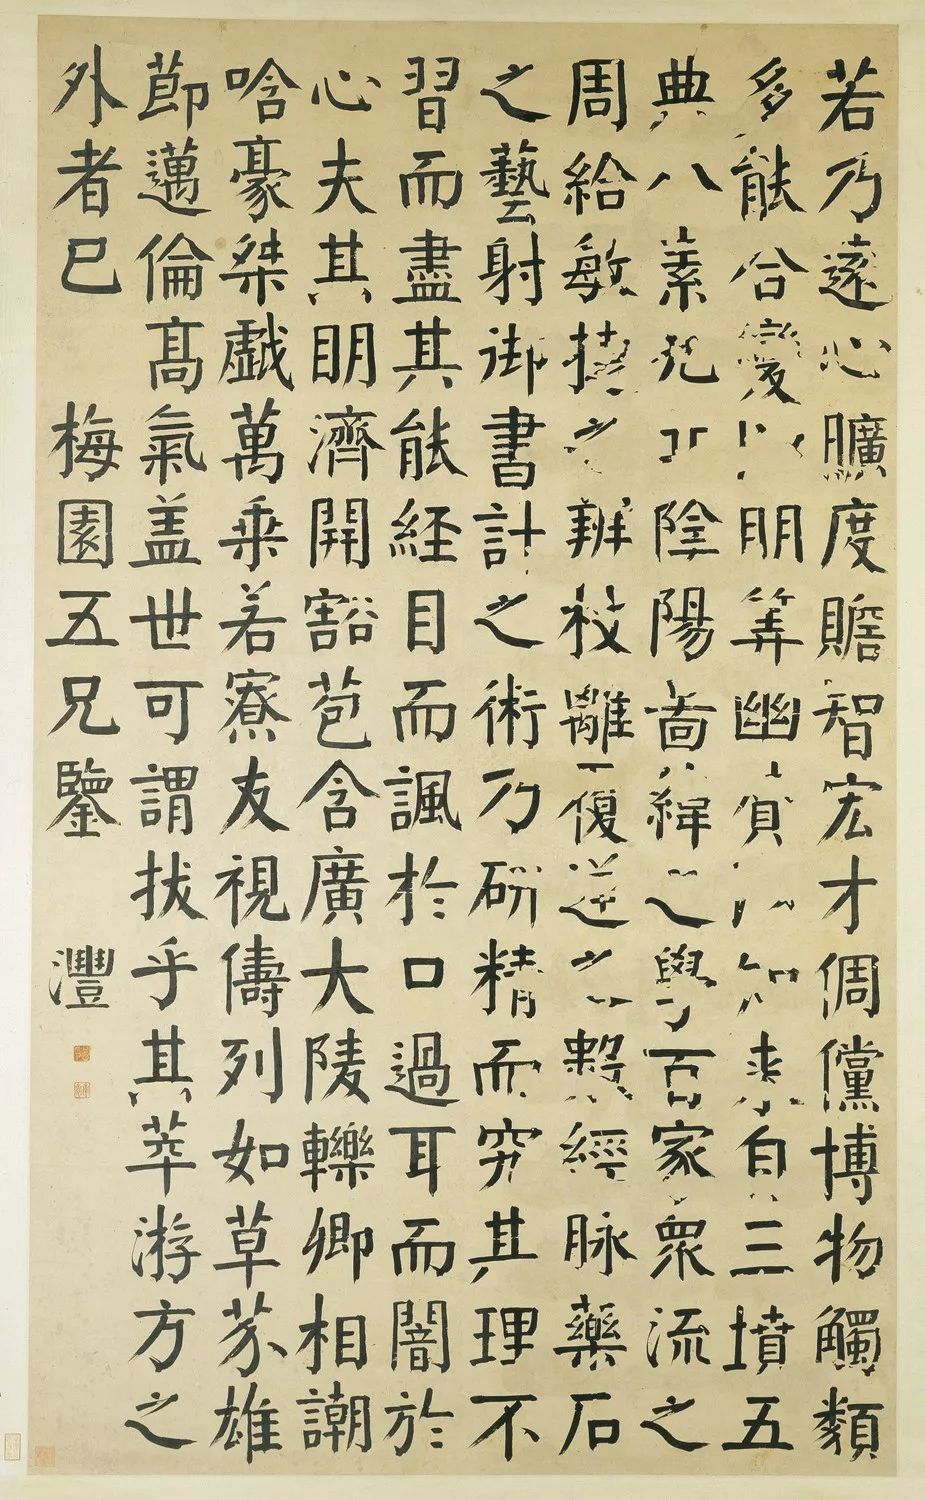 若乃遠心曠度贍智宏才倜儻博物觸類
多能合變以明筭幽贊以知來自三墳五
典八素九丘陰陽啚緯之學百家衆流之
周給敏捷之辨枝離覆逆之數經脉藥石
之藝射御書計之術乃研精而究其理不
習而盡其能経目而諷於口過耳而闇於
心夫其明濟開豁苞含廣大陵轢卿相謿
唅豪桀戲萬乘若寮友視儔列如草芥雄
節邁倫髙氣盖世可謂拔乎其萃游方之
外者已 梅園五兄鑒 灃